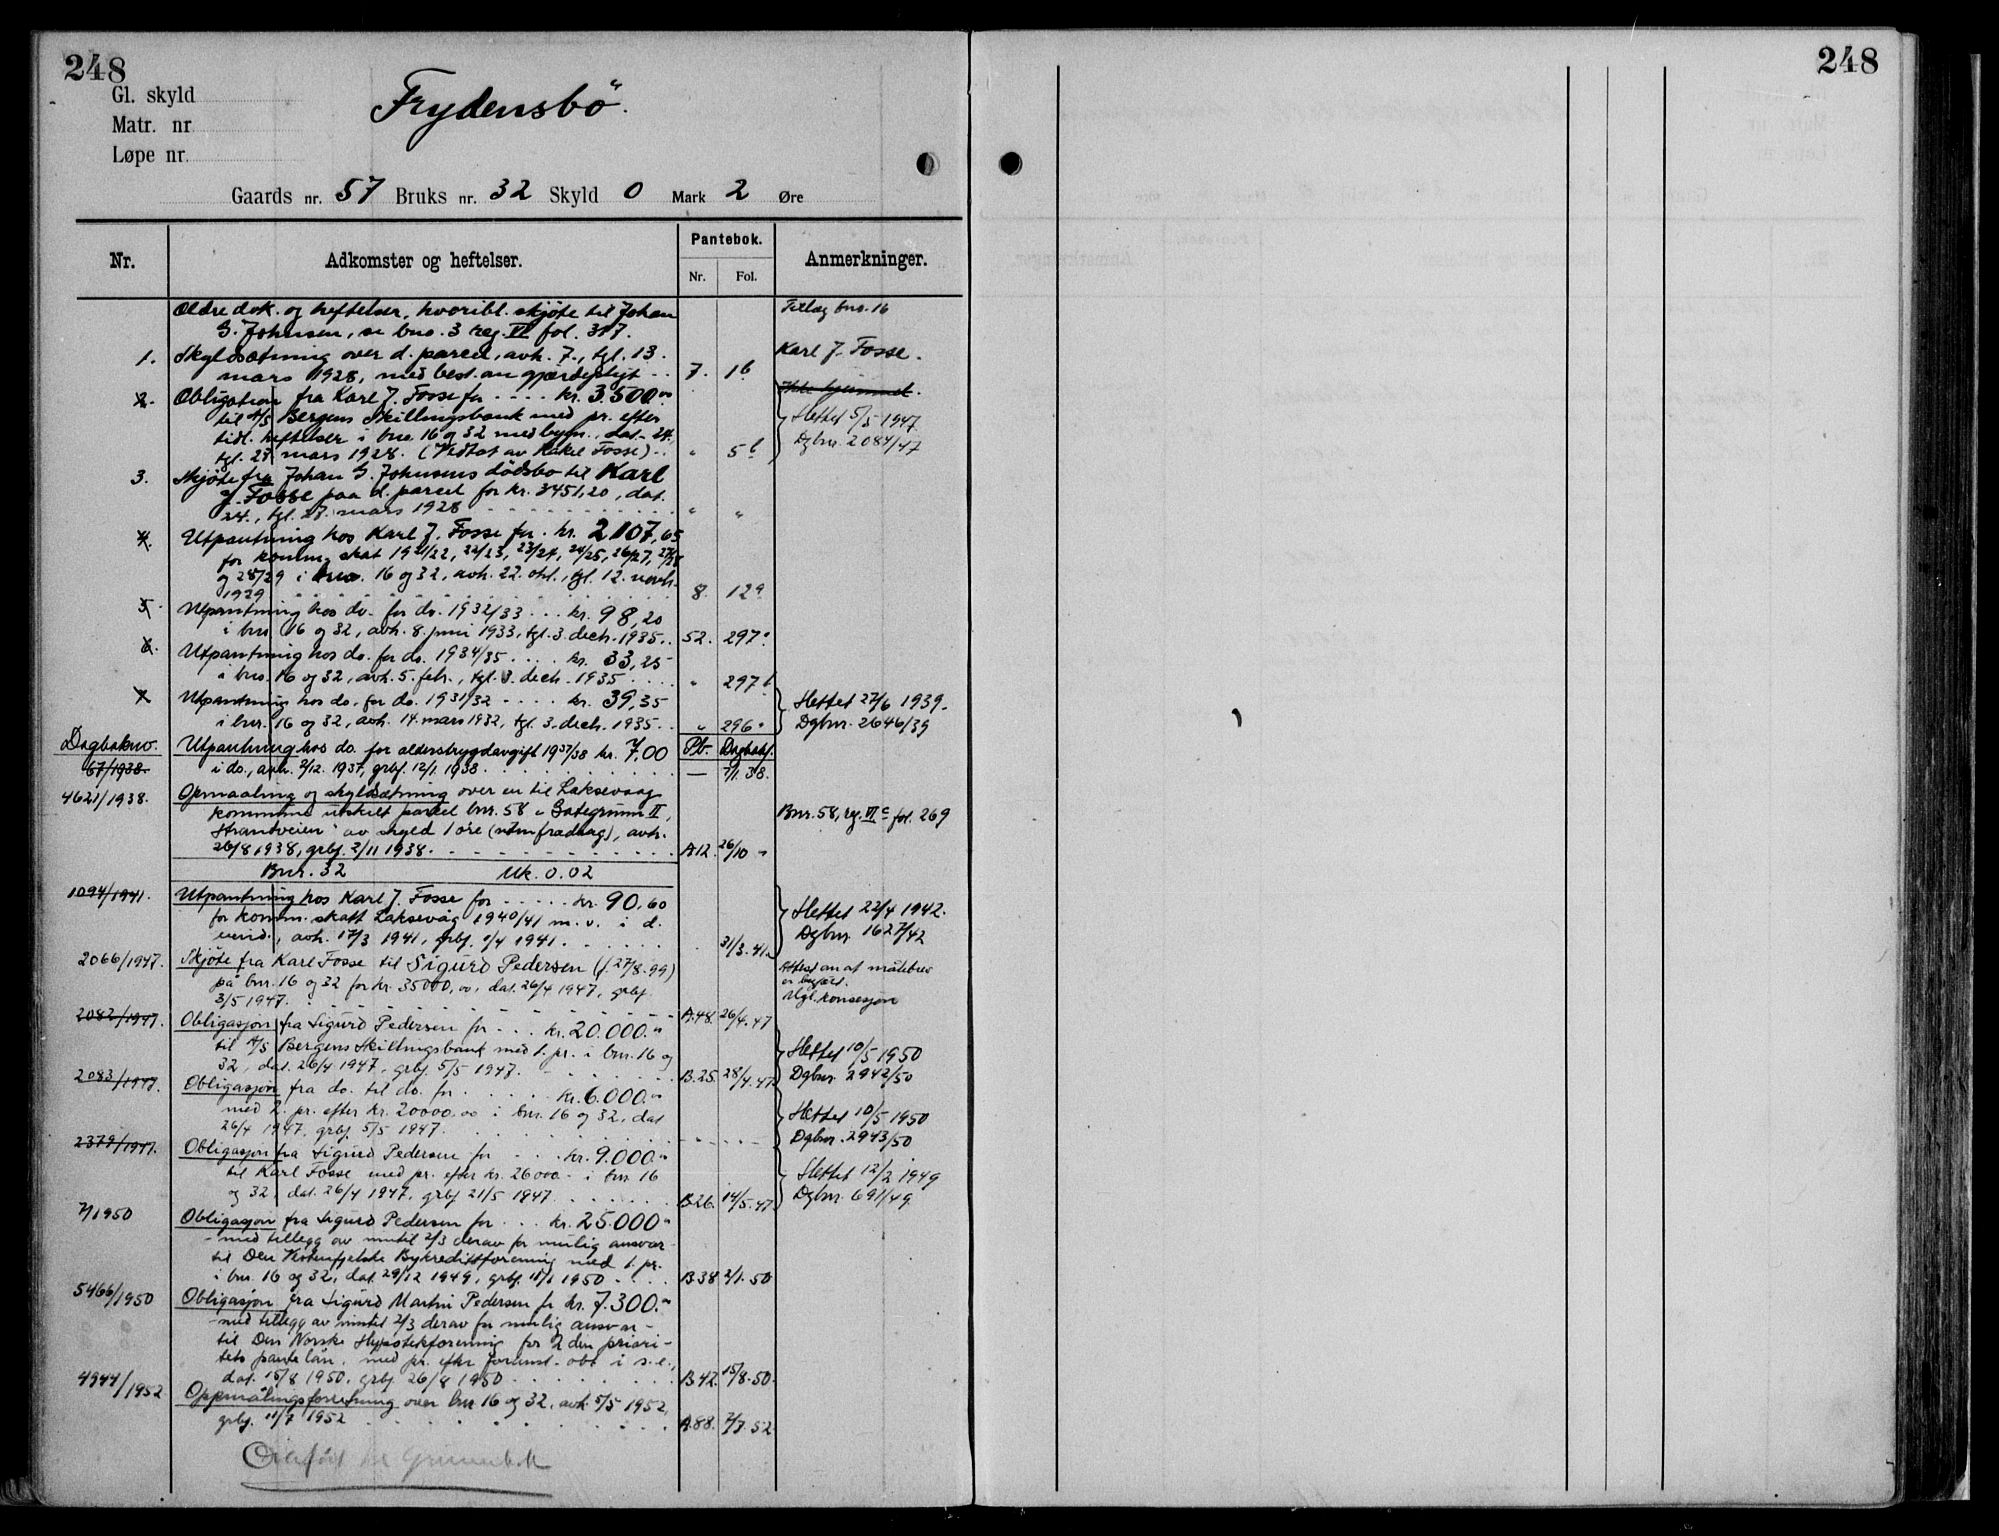 248
Gl. skyld
Matr. nr
Løpe nr.
Frydensbö.
Gaards nr. 57 Bruks nr. 32 Skyld 0 Mark 2 Øre
Nr. Adkomster og heftelser. Pantebok. Anmerkninger.
Nr. Fol.
Ældre dok. og heftelser, hvoribl. skjöte til Johan Tillæg bno. 16
G. Johnsen, se bno. 3 reg. VI fol. 317.
1. Skyldsætning over d. parcel, avh. 7., tgl. 13. Karl J. Fosse.
mars 1928, med best. om gjærdepligt 7. 1b
2. Obligation fra Karl J. Fosse for kr. 3.500.00 Ikke hjemmel.
til A/S Bergens Skillingsbank med pr. efter Slettet 5/5 1947
tidl. heftelser i bno. 16 og 32 med bygn., dat. 24., Dgbnr. 2084/47
tgl. 27. mars 1928. (Vedtat av Rakel Fosse) " 5b
3. Skjöte fra Johan G. Johnsens dödsbo til Karl
J. Fosse paa d. parcel for kr. 3451,20, dat.
24., tgl. 27. mars 1928 " "
4. Utpantning hos Karl J. Fosse for kr. 2107,65
for komm. skat 1921/22, 22/23, 23/24, 24/25, 26/27, 27/28
og 28/29 i bno. 16 og 32, avh. 22. okt., tgl. 12. novb.
1929 8. 12a
5. Utpantning hos do. for do. 1932/33 kr. 98,20
i bno. 16 og 32, avh. 8. juni 1933, tgl. 3. decb. 1935. 52. 297a
6. Utpantning hos do. for do. 1934/35 kr. 33,25
i bno. 16 og 32, avh. 5. febr., tgl. 3. decb. 1935 " 297b
7. Utpantning hos do. for do. 1931/32 kr. 39,35 Slettet 27/6 1939.
i bnr. 16 og 32, avh. 14. mars 1932, tgl. 3. decb. 1935. " 296a Dgbnr. 2646/39
Dagboknr. Utpantning hos do. for alderstrygdavgift 1937/38 kr. 7,00 Pb. Dagbokf.
67/1938. i do., avh. 2/12. 1937, grbf. 12/1. 1938 — 7/1. 38.
4621/1938. Opmaaling og skyldsætning over en til Laksevaag
kommune utskilt parcel bnr. 58 „Gategrunn II, Bnr. 58, reg. VI c fol. 269
Strandveien" av skyld 1 øre (uten fradrag), avh.
26/8 1938, grbf. 2/11 1938. A12. 26/10 "
Bnr. 32 Uk. 0.02
1094/1941. Utpantning hos Karl J. Fosse for kr. 90,60
for komm. skatt Laksevåg 1940/41 m. v. i d. Slettet 22/4 1942.
eiend., avh. 17/3 1941, grbf. 1/4 1941. 31/3. 41. Dgbnr. 1627/42
2066/1947. Skjöte fra Karl Fosse til Sigurd Pedersen (f. 27/8. 99) Attest om at målebrev
på bnr. 16 og 32 for kr. 35000,00, dat. 26/4 1947, grbf. er begjært.
3/5 1947. A.48. 26/4. 47 Utgl. konsesjon
2082/1947. Obligasjon fra Sigurd Pedersen for kr. 20.000.00
til A/S Bergens Skillingsbank med 1. pr. i bnr. 16 og Slettet 10/5 1950
32, dat. 26/4 1947, grbf. 5/5 1947. B.25. 28/4. 47. Dgbnr. 2942/50
2083/1947. Obligasjon fra do. til do. for kr. 6.000.00
med 2. pr. efter kr. 20000.00 i bnr. 16 og 32, dat. Slettet 10/5 1950
26/4 1947, grbf. 5/5 1947. Dgbnr. 2943/50
2379/1947. Obligasjon fra Sigurd Pedersen for kr. 9.000.00
til Karl Fosse med pr. efter kr. 26000.- i bnr. 16 Slettet 12/2 1949
og 32, dat. 26/4 1947, grbf. 21/5 1947 B.26. 14/5. 47. Dgbnr. 691/49
7/1950 Obligasjon fra Sigurd Pedersen for kr. 25.000.00
- med tillegg av inntil 2/3 derav for mulig ansvar -
til Den Vestenfjelske Bykredittforening med 1. pr.
i bnr. 16 og 32, dat. 29/12 1949, grbf. 11/1 1950 B.38. 2/1. 50
5466/1950 Obligasjon fra Sigurd Martin Pedersen for kr. 7.300.00
- med tillegg av inntil 2/3 derav for mulig ansvar -
til Den Norske Hypotekforening for 2den priori-
tets pante lån, med pr. efter foranst. obl. i s.e.,
dat. 15/8 1950, grbf. 26/8 1950 B.42. 15/8. 50.
4944/1952 Oppmålingsforretning over bnr. 16 og 32, avh. 5/5 1952,
grbf. 11/7 1952 A.88. 2/7. 52
248